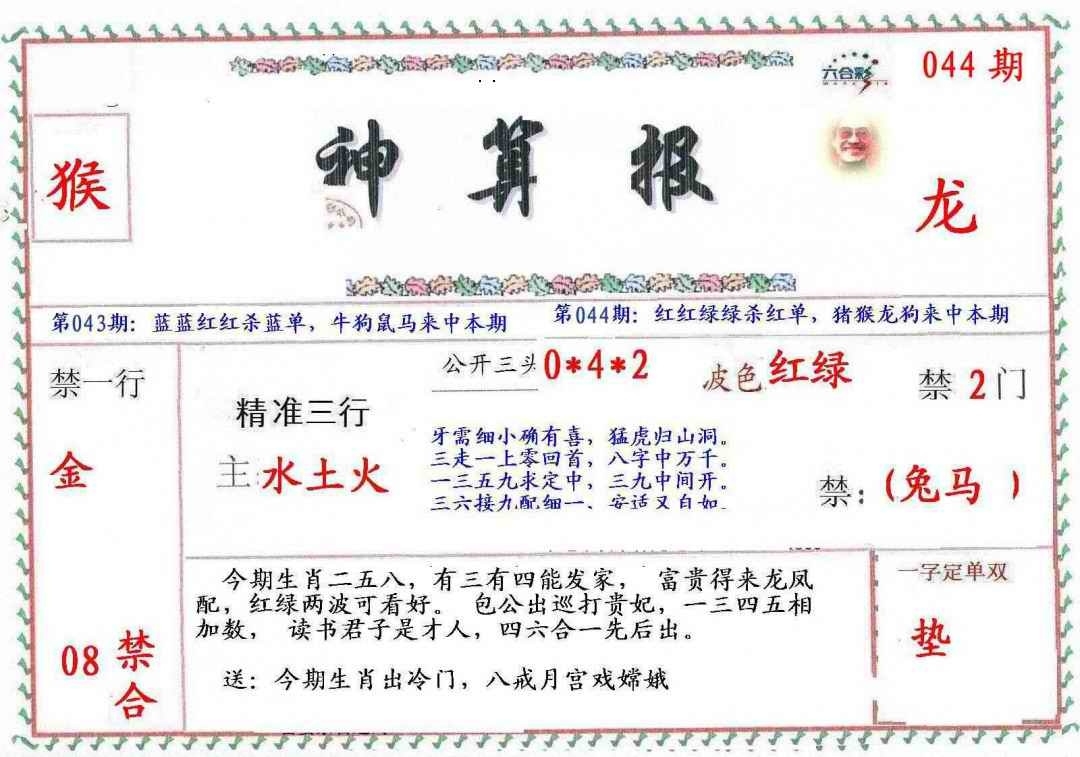 六合彩
044期
神算报
猴
龙
第043期：蓝蓝红红杀蓝单，牛狗鼠马来中本期
第044期：红红绿绿杀红单，猪猴龙狗来中本期
禁一行
金
08禁合
精准三行
主：水土火
公开三头0*4*2
波色 红绿
禁2门
牙需细小确有喜，猛虎归山洞。
三走一上零回首，八字中万千。
一三五九求定中，三九中间开。
三六接九配细一、安适又自如
禁：（兔马 ）
今期生肖二五八，有三有四能发家， 富贵得来龙凤
配，红绿两波可看好。 包公出巡打贵妃，一三四五相
加数， 读书君子是才人，四六合一先后出。
送：今期生肖出冷门，八戒月宫戏嫦娥
一字定单双
垫